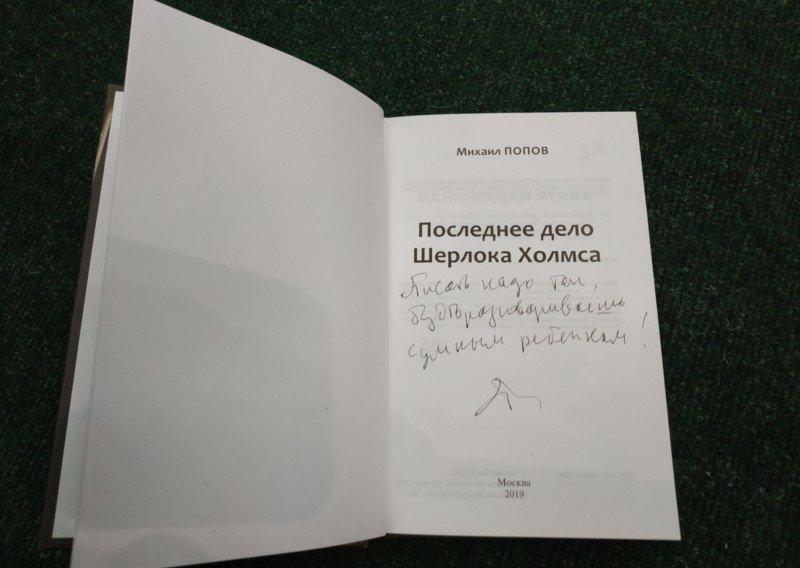 Михаил ПОПОВ
Последнее дело
Шерлока Холмса
Писать надо так,
будто разговариваешь
с умным ребенком!
Москва
2019